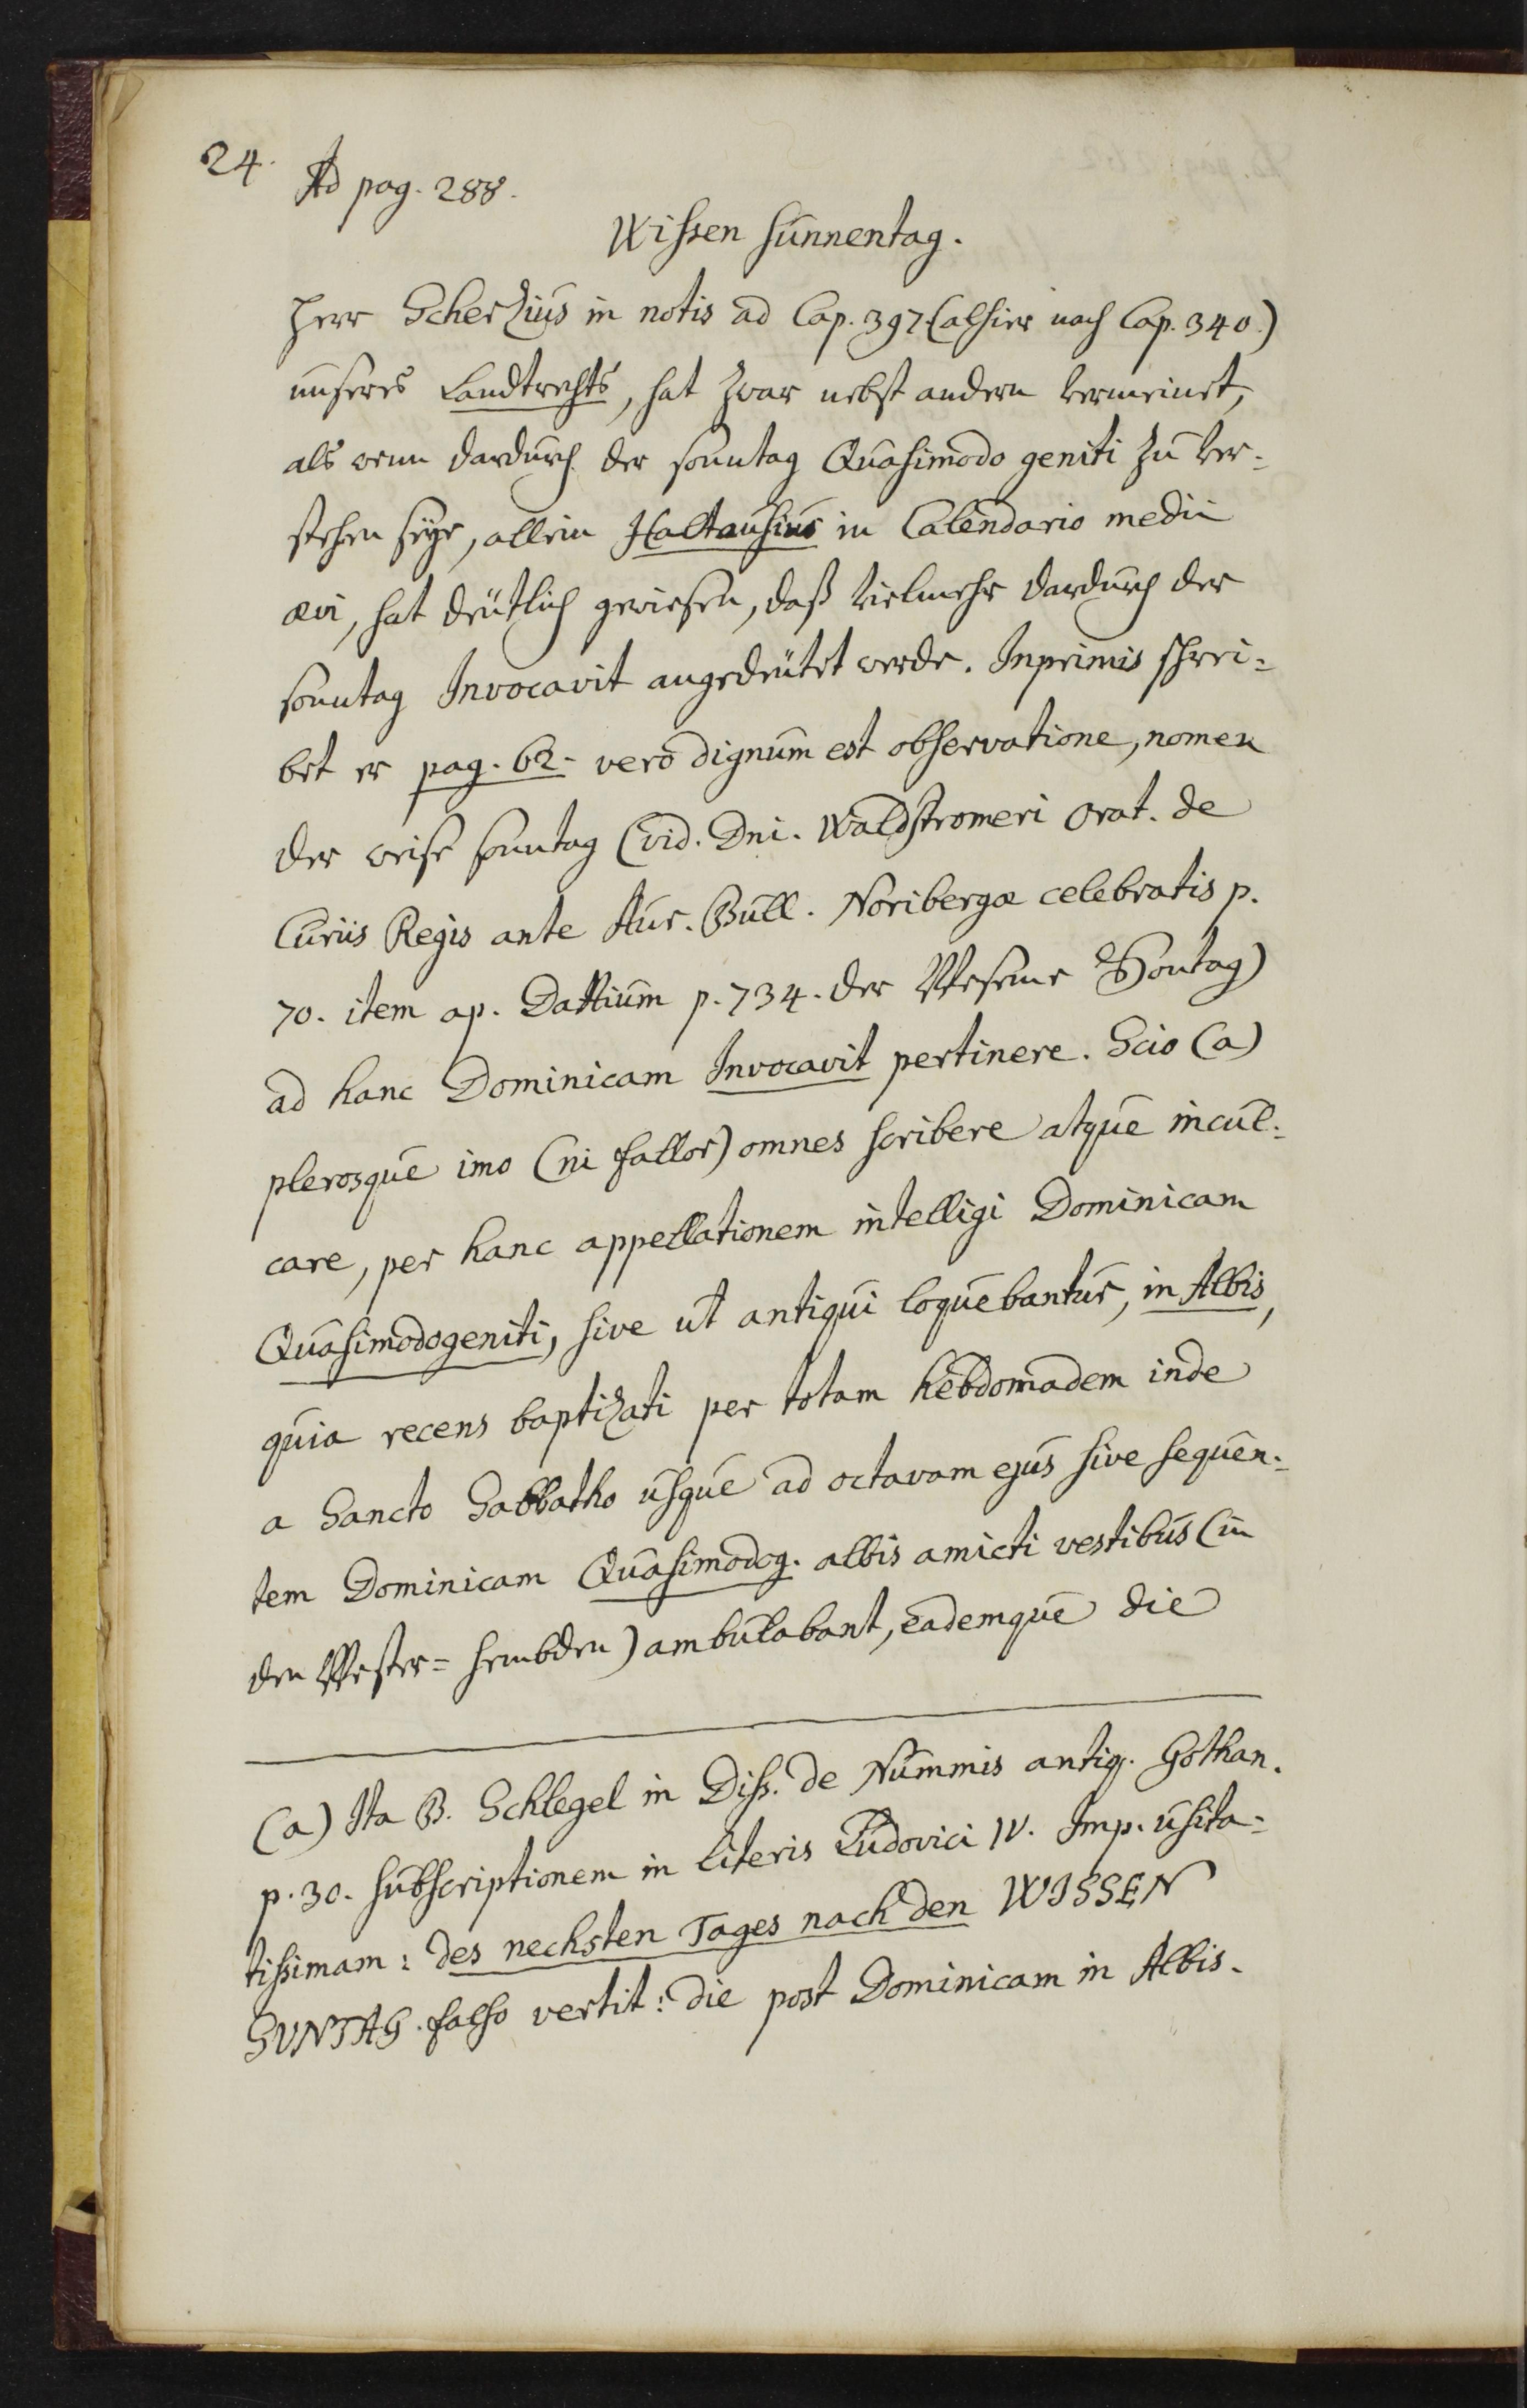 24.
Ad pag. 288.
Wissen sunnentag.
Herr Scherzius in notis ad Cap. 397. (alhier nach Cap. 340.)
unseres Landtrechts, hat zwar nebst andern vermeinet,
als wenn dardurch der sonntag Quasimodo geniti zu ver-
stehen seye, allein Haltausius in Calendario medii
ævi, hat deütlich gewiesen, daß vielmehr dardurch der
sonntag Invocavit angedeütet werde. Inprimis schrei-
bet er pag. 62. vero dignum est observatione, nomen
der weise sonntag (vid. Dni. Waldstromeri orat. de
Curiis Regis ante Aur. Bull. Noribergæ celebratis p.
70. item ap. Dattium p. 734. der Wesene Sontag)
ad hanc Dominicam Invocavit pertinere. Scio (a)
plerosque imo (ni fallor) omnes scribere atque incul-
care, per hanc appellationem intelligi Dominicam
Quasimodogeniti, sive ut antiqui loquebantur, in Albis,
quia recens baptizati per totam hebdomadem inde
a Sancto Sabbatho usque ad octavam ejus sive sequen-
tem Dominicam Quasimodog. albis amicti vestibus (in
den Wester-hembden) ambulabant, eademque die
(a) Ita B. Schlegel in Diss. de Nummis antiq. Gothan.
p. 30. subscriptionem in literis Ludovici IV. Imp. usita-
tissimam: des nechsten Tages nach den WISSEN
SUNTAG. falso vertit: die post Dominicam in Albis.